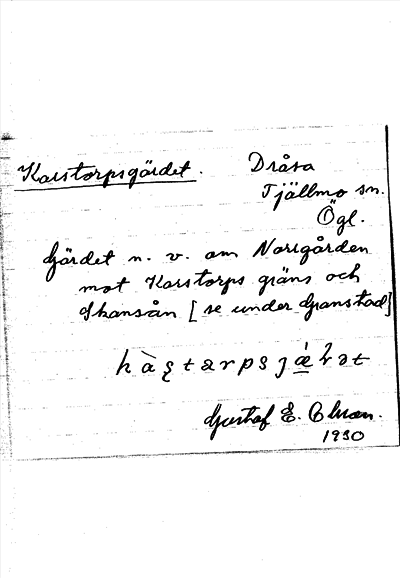 Karstorpsgärdet. Dråsa
Tjällmo sn.
Ögl.
Gärdet n. v. om Norrgården
mot Karstorps gräns och
Skansån [se under Granstad]
Gustaf E. Olsson.
1930